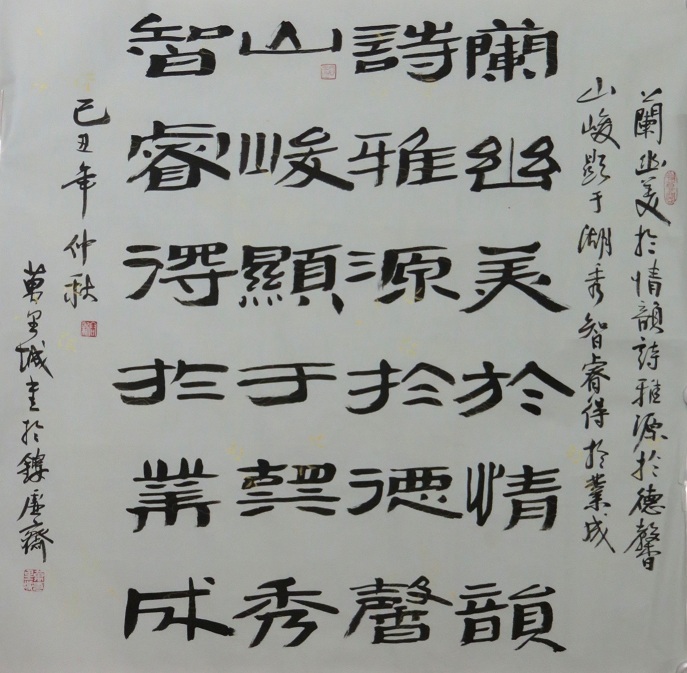 蘭幽美於情韻詩雅源於德馨
山峻顯于湖秀智睿得於業成
蘭幽美於情韻
詩雅源於德馨
山峻顯于秀
智睿得於業成
己丑年仲秋
萬里城書於齋